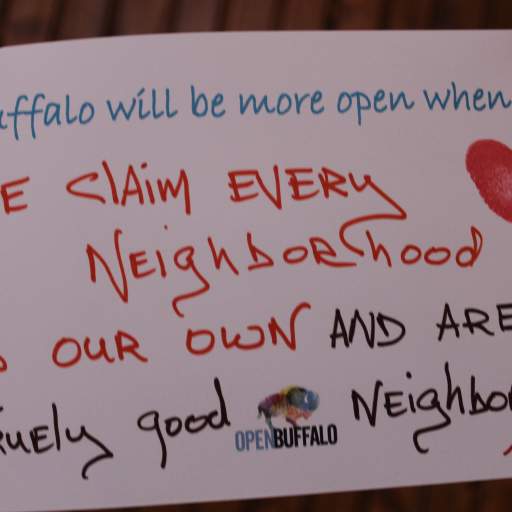 uffalo will be more open when
E claim EVERY
NEighborhood
OUR OWN AND ARE
ruely good NEighbo
OPENBUFFALO